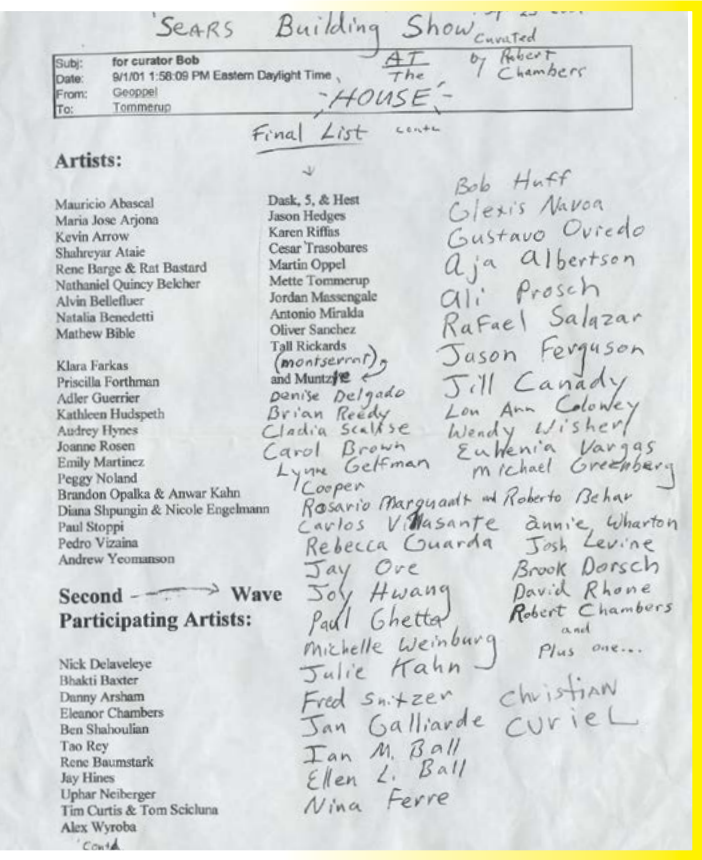 SEARS Building Show
Curated
by Robert
Chambers
AT
The
HOUSE
Subj: for curator Bob
Date: 9/1/01 1:58:09 PM Eastern Daylight Time
From: Geoppel
To: Tommerup
Final List contd
Artists:
Mauricio Abascal
Maria Jose Arjona
Kevin Arrow
Shahreyar Ataie
Rene Barge & Rat Bastard
Nathaniel Quincy Belcher
Alvin Bellefluer
Natalia Benedetti
Mathew Bible
Klara Farkas
Priscilla Forthman
Adler Guerrier
Kathleen Hudspeth
Audrey Hynes
Joanne Rosen
Emily Martinez
Peggy Noland
Brandon Opalka & Anwar Kahn
Diana Shpungin & Nicole Engelmann
Paul Stoppi
Pedro Vizaina
Andrew Yeomanson
Second Wave
Participating Artists:
Nick Delaveleye
Bhakti Baxter
Danny Arsham
Eleanor Chambers
Ben Shahoulian
Tao Rey
Rene Baumstark
Jay Hines
Uphar Neiberger
Tim Curtis & Tom Scicluna
Alex Wyroba
Contd
Dask, 5, & Hest
Jason Hedges
Karen Riffas
Cesar Trasobares
Martin Oppel
Mette Tommerup
Jordan Massengale
Antonio Miralda
Oliver Sanchez
Tall Rickards
(montserrat)
and Muntz
Denise Delgado
Brian Reedy
Cladia Scalise
Carol Brown
Lynne Gelfman
Cooper
Rosario Marquardt and Roberto Behar
Carlos Villasante
Rebecca Guarda
Jay Ore
Joy Hwang
Paul Ghetta
Michelle Weinburg
Julie Kahn
Fred Snitzer
Jan Galliarde
Ian M. Ball
Ellen L. Ball
Nina Ferre
Bob Huff
Glexis Navoa
Gustavo Oviedo
Aja Albertson
Ali Prosch
Rafael Salazar
Jason Ferguson
Jill Canady
Lou Ann Colowey
Wendy Wisher
Euhenia Vargas
Michael Greenberg
annie Wharton
Josh Levine
Brook Dorsch
David Rhone
Robert Chambers
and
Plus one...
Christian
Curiel